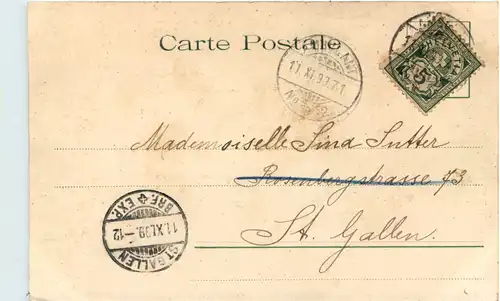 Carte Postale
HELVETIA
5
Mademoiselle Lina Sutter
Rosenbergstrasse 43
St. Gallen.
ST. GALLEN
11.XI.99.-12
BRF. EXP.